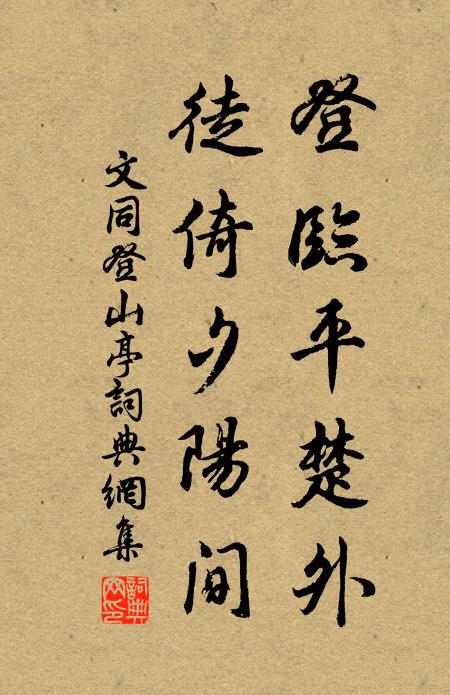 登臨平楚外
徒倚夕陽間
文同登山亭詞典網集
詞典網印